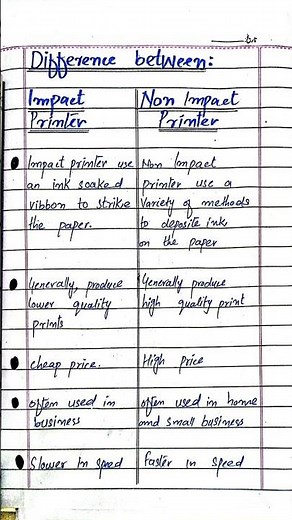 Difference between:
Impact
Printer
Non Impact
Printer
Impact printer use
an ink soaked
ribbon to strike
the paper.
Non Impact
printer use a
Variety of methods
to deposite ink
on the paper
Generally, produce
lower quality
prints
Generally produce
high quality print
cheap price.
High price
often used in
business
often used in home
and small business
Slower in speed
faster in speed